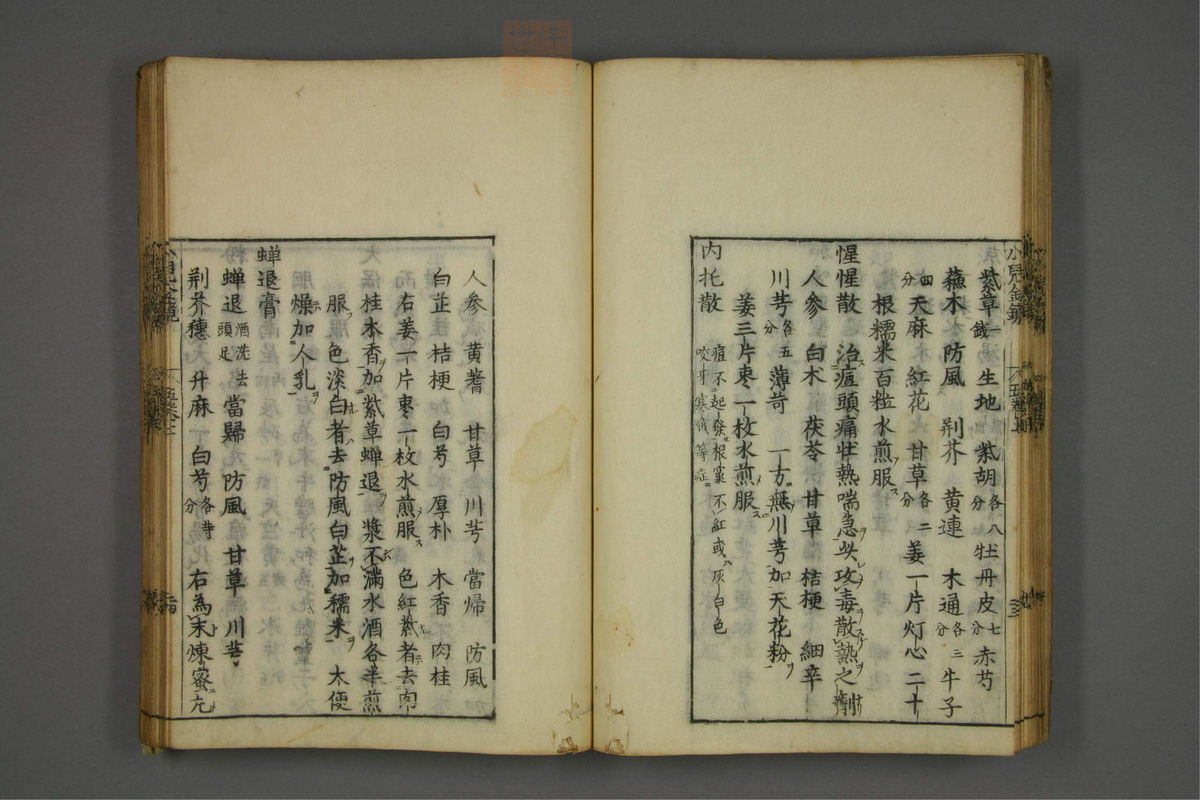 紫草一錢 湯 生地 柴胡各八分 牡丹皮七分 赤芍
蘇木 防風 荆芥 黄連 木通各三分 牛子
四分 天麻 紅花 甘草各二分 姜一片灯心二十
根糯米百粒水煎服ス
惺惺散 治痘頭痛壮熱喘急此攻毒散熱之劑
人參 白朮 茯苓 甘草 桔梗 細辛
川芎各五分 薄苛 一方無川芎加天花粉
姜三片枣一枚水煎服ス
内托散 痘不起發根窠不紅或灰白色
咬牙寒戦等症
人參 黄耆 甘草 川芎 當帰 防風
白芷 桔梗 白芍 厚朴 木香 肉桂
右姜一片枣一枚水煎服ス 色紅紫者去肉
桂木香加紫草蝉退 漿不満水酒各半煎
服 色淡白者去防風白芷加糯米 大便
燥加人乳
蝉退膏
蝉退酒洗去頭足 當歸 防風 甘草 川芎
荆芥穗 升麻 白芍各等分 右為末煉蜜丸